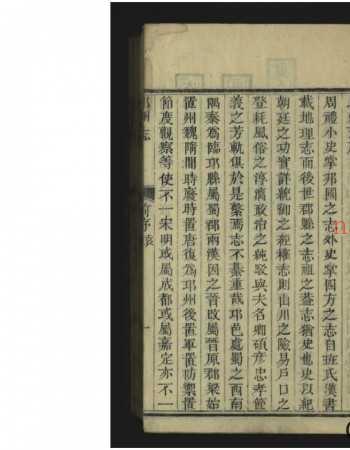 周禮小史掌邦國之志外史掌四方之志自班氏漢書
載地理志而後世郡縣之志祖之蓋志猶史也史以紀
朝廷之功實詳統御之經權志則由川之險易戶口之
登耗風俗之淳漓政治之純駁與夫名卿碩彥忠孝節
義之芳軌俱於是繫焉志不綦重哉邛邑處蜀之西南
隅秦為臨邛縣屬蜀郡兩漢因之晉改屬晉原郡梁始
置州魏隋間時廢時置唐復為邛州後置軍置防禦置
節度觀察等使不一宋明或屬成都或屬嘉定亦不一
州志
序
一